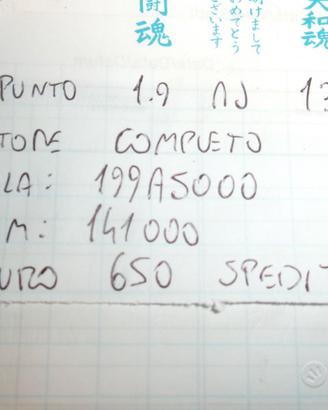 闘魂
明けまして
おめでとう
ございます
大和魂
PUNTO 1.9 NJ 13
TORE COMPLETO
LA: 199A5000
M: 141000
URO 650 SPEDIT